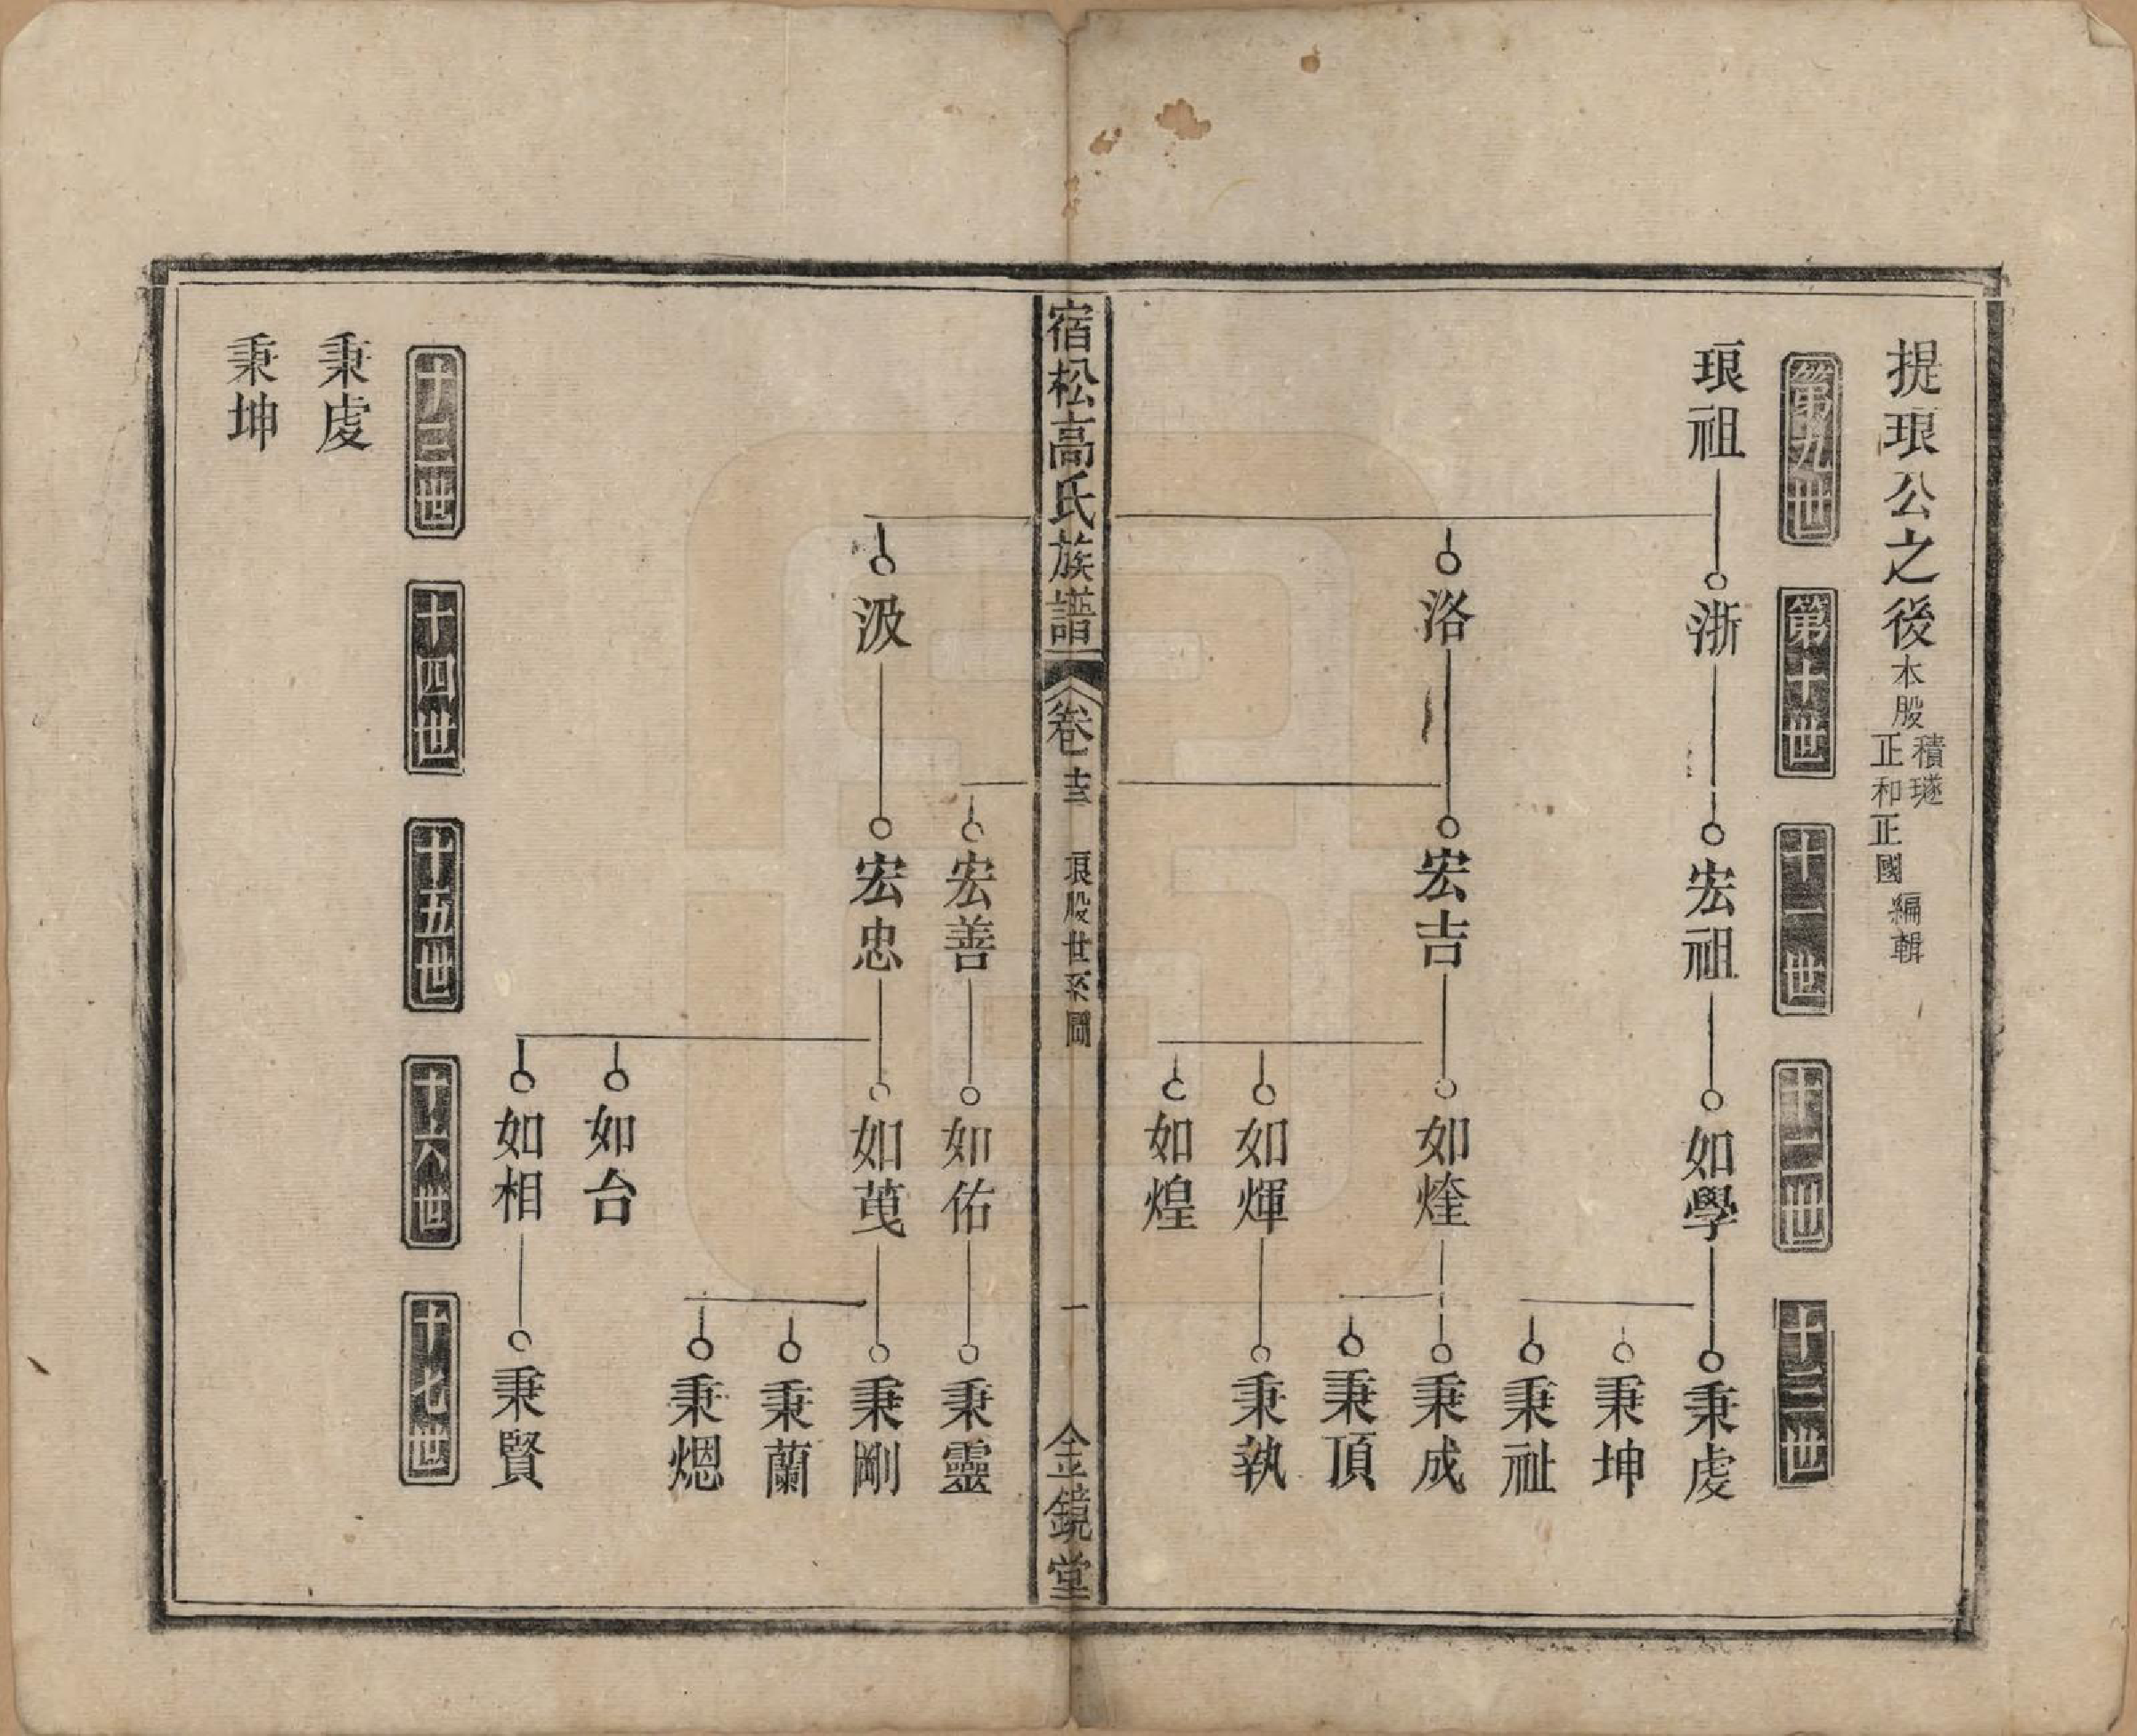 提琅公之後
本股
積璲
正和正國
編輯
第九世
第十世
十一世
十二世
十三世
琅祖
浙
宏祖
如學
秉虔
秉坤
秉祉
洛
宏吉
如煃
秉成
秉頂
如煇
秉執
如煌
宿松高氏族譜
卷十三
琅股世系圖
一
金鏡堂
宏善
如佑
秉靈
汲
宏忠
如萈
秉剛
秉蘭
秉熜
如台
如相
秉賢
十三世
十四世
十五世
十六世
十七世
秉虔
秉坤